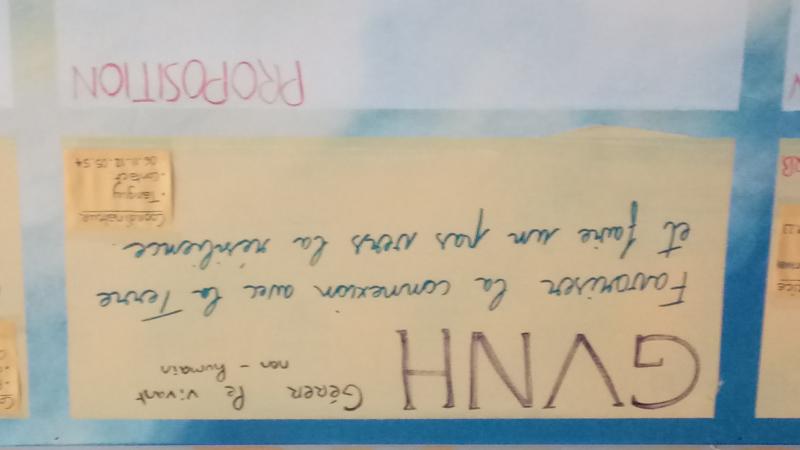 GVNH
Gérer le vivant
non-humain
Favoriser la connexion avec la Terre
et faire un pas vers la résilience.
Coordinateur
· Tanguy
· Contact
06.11.12.05.54
PROPOSITION